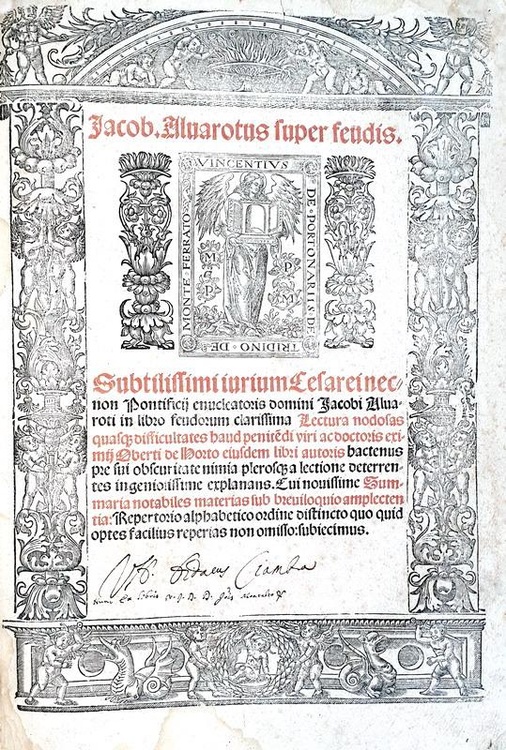 Jacob. Aluarotus super feudis.
VINCENTIVS
DE · PORTONARIIS · DE
TRIDINO · DE
MONTE · FERRATO
M P
P M
Subtilissimi iurium Cesarei nec
non Pontificij enucleatoris domini Jacobi Alua-
roti in libro feudorum clarissima Lectura nodosas
quasq; difficultates haud penitẽdi viri ac doctoris exi-
mij Oberti de Horto eiusdem libri autoris hactenus
pre sui obscuritate nimia plerosq; a lectione deterren-
tes ingeniosissime explanans. Cui nouissime Sum-
maria notabiles materias sub breuiloquio amplecten
tia: Repertorio alphabetico ordine distincto quo quid
optes facilius reperias non omisso: subiecimus.